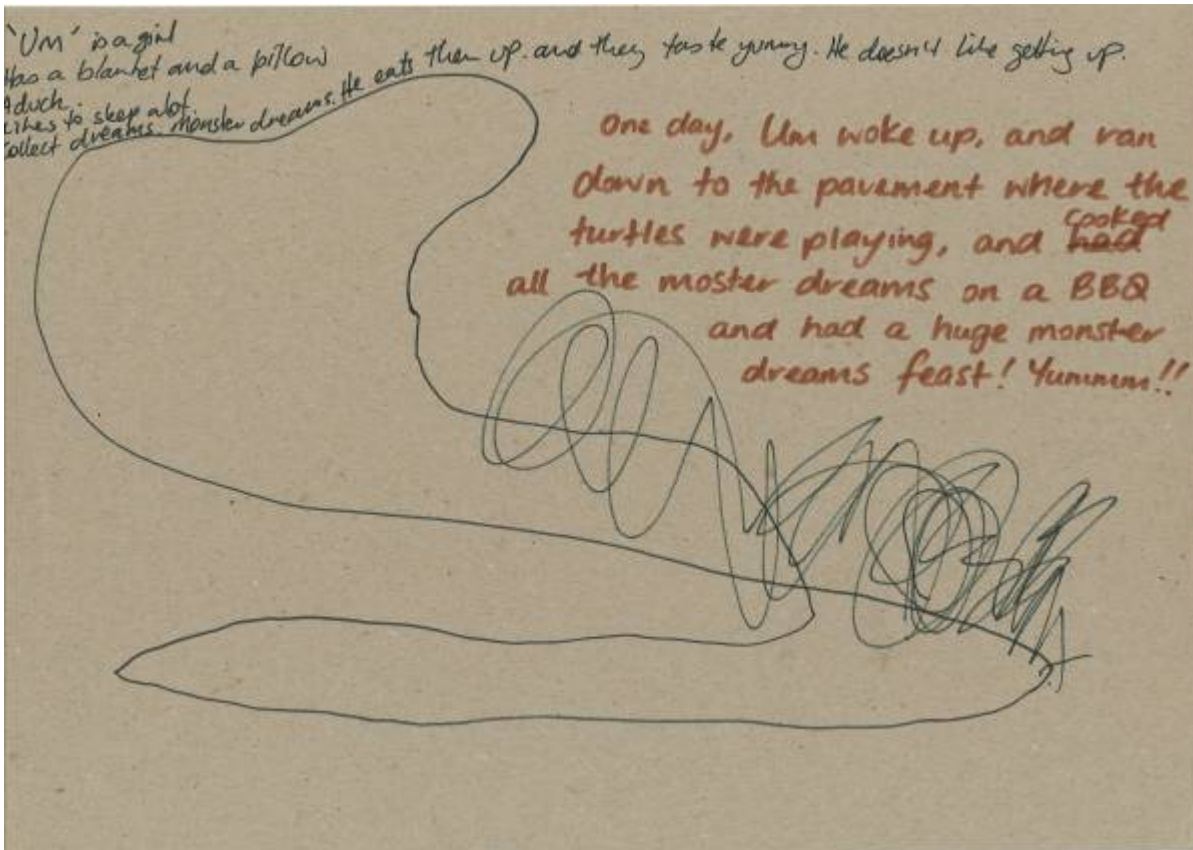 'UM' is a girl
Has a blanket and a pillow
A duck.
Likes to sleep alot.
Collect dreams. Monster dreams. He eats them up. and they taste yummy. He doesn't like getting up.
One day, Um woke up, and ran
down to the pavement where the
turtles were playing, and had cooked
all the moster dreams on a BBQ
and had a huge monster
dreams feast! Yummm!!